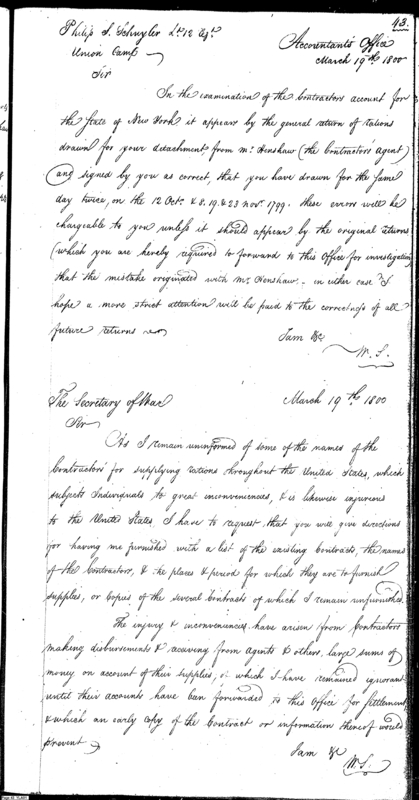 43.
Philip S. Schuyler Lt 12 Regt.
Union Camp
Accountants Office
March 19th 1800
Sir
In the examination of the Contractors account for
the State of New York it appears by the general return of rations
drawn for your detachment, from Mr. Henshaw (the Contractors Agent)
and signed by you as correct, that you have drawn for the same
day twice, on the 12 Octr. & 8. 19 & 23 novr. 1799. these errors will be
chargeable to you unless it should appear by the original returns
(which you are hereby required to forward to this Office for investigation)
that the mistake originated with Mr. Henshaw. in either case I
hope a more strict attention will be paid to the correctness of all
future returns
I am &c
W. S.
The Secretary of War
March 19th. 1800
Sir
As I remain uninformed of some of the names of the
Contractors for supplying rations throughout the United States, which
subjects Individuals to great inconveniencies, & is likewise injurious
to the United States, I have to request that you will give directions
for having me furnished with a list of the existing Contracts, the names
of the Contractors, & the places & period for which they are to furnish
supplies, or Copies of the several Contracts of which I remain unfurnished.
The injury & inconveniences have arisen from Contractors
making disbursements & receiving from Agents & others, large sums of
money on account of their supplies, of which I have remained ignorant
until their accounts have been forwarded to this Office for settlement
& which an early Copy of the Contract or information thereof would
prevent
I am &c
W. S.